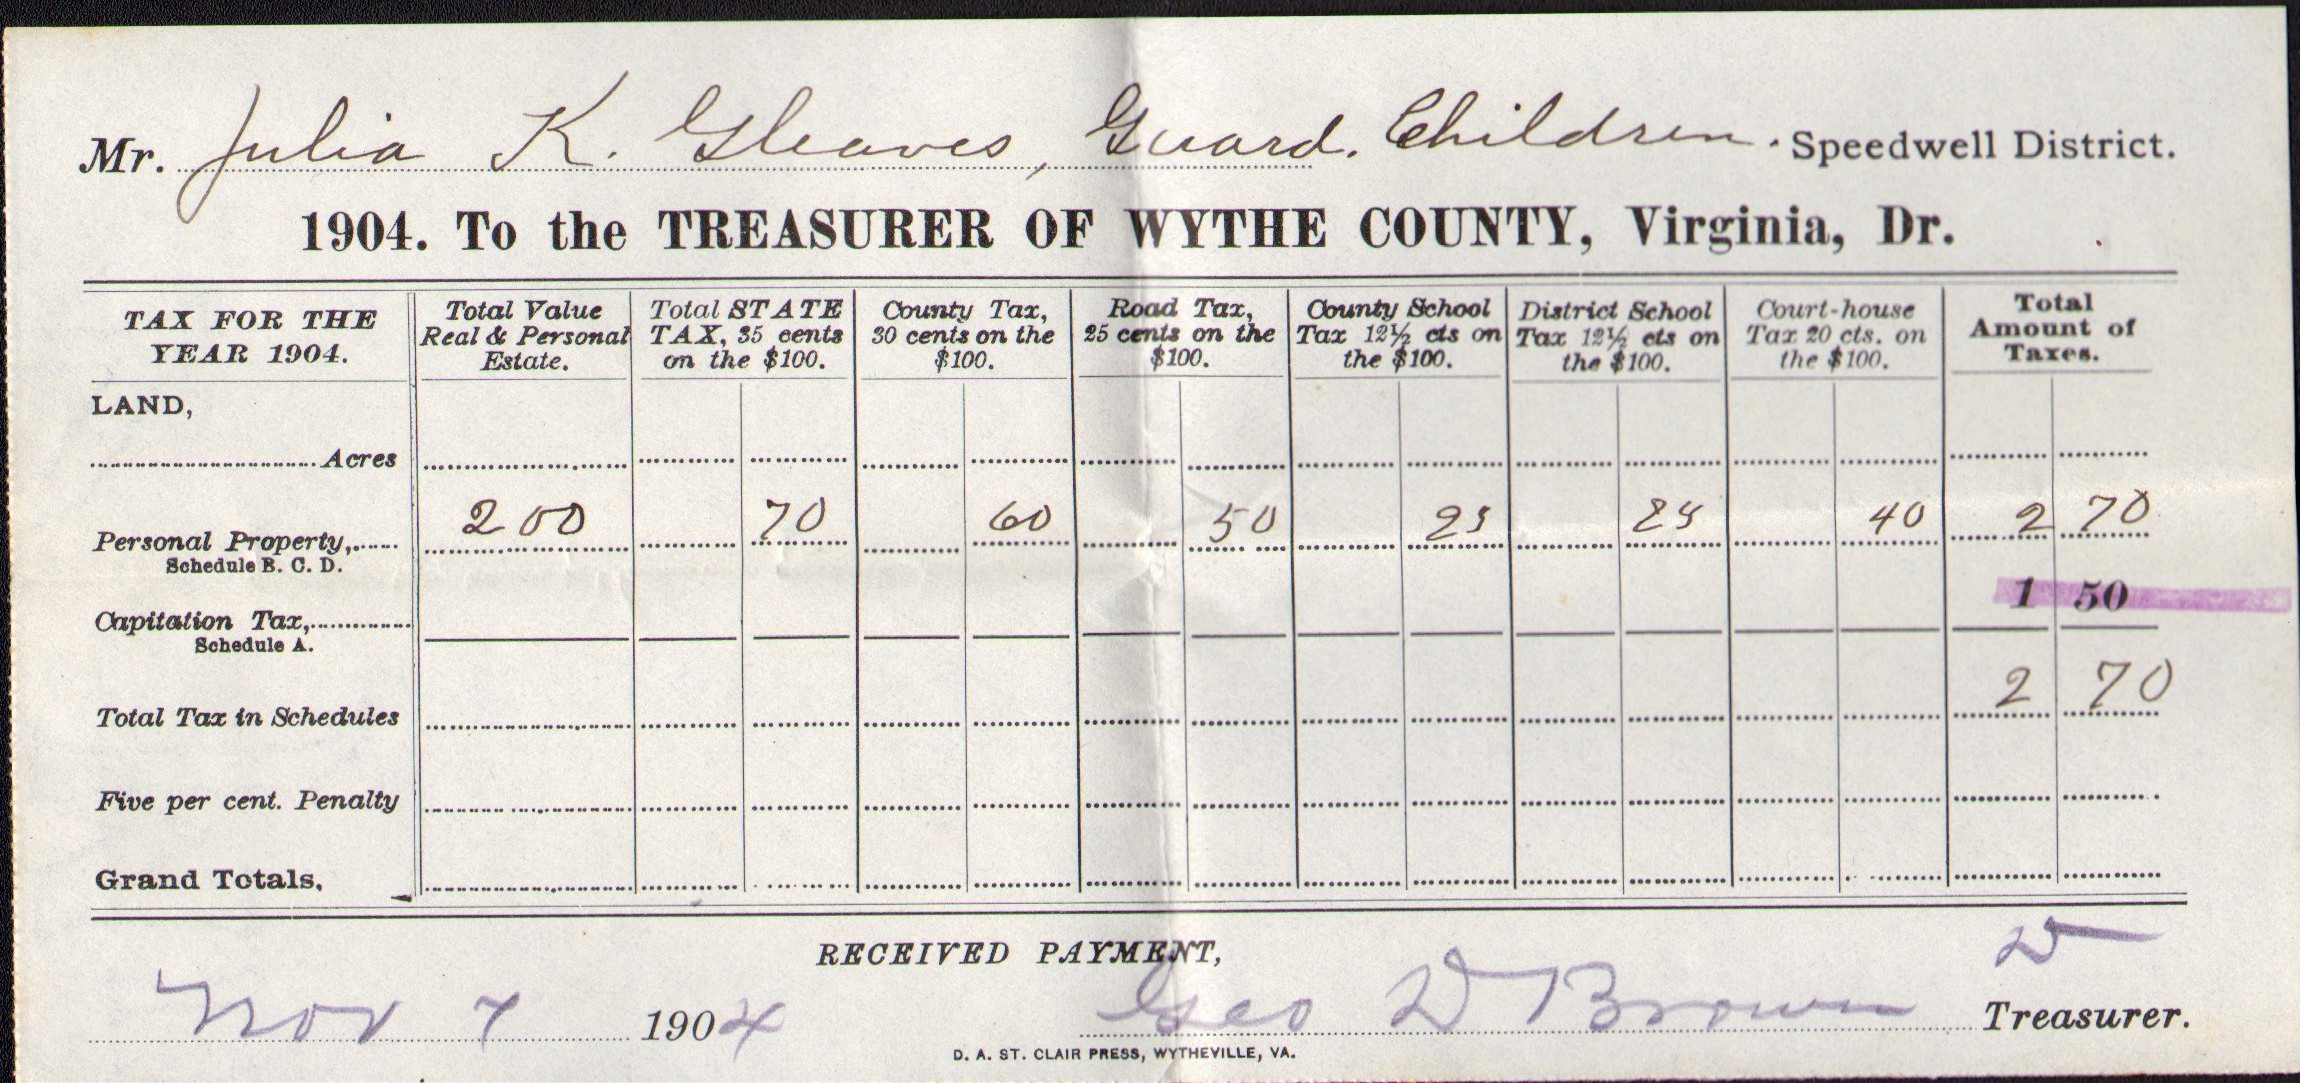 Mr. Julia K. Gleaves, Guard. Children. Speedwell District.
1904. To the TREASURER OF WYTHE COUNTY, Virginia, Dr.
TAX FOR THE YEAR 1904. Total Value Real & Personal Estate. Total STATE TAX, 35 cents on the $100. County Tax, 30 cents on the $100. Road Tax, 25 cents on the $100. County School Tax 12½ cts on the $100. District School Tax 12½ cts on the $100. Court-house Tax 20 cts. on the $100. Total Amount of Taxes.
LAND,
Acres
Personal Property, 200 70 60 50 25 25 40 2 70
Schedule B. C. D.
Capitation Tax, 1 50
Schedule A.
Total Tax in Schedules 2 70
Five per cent. Penalty
Grand Totals,
RECEIVED PAYMENT,
Nov 7 1904 Geo W Brown Treasurer.
D. A. ST. CLAIR PRESS, WYTHEVILLE, VA.